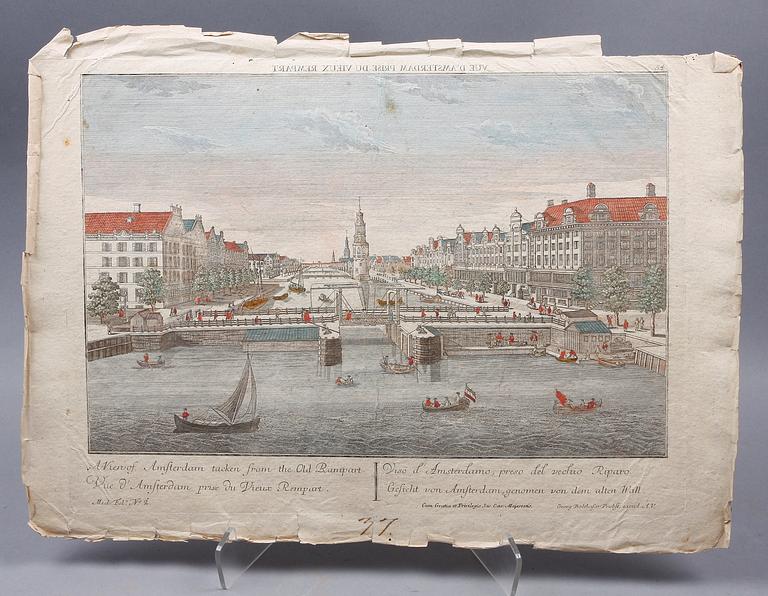 VUE D'AMSTERDAM PRISE DU VIEUX REMPART
A View of Amsterdam tacken from the Old Rampart
Vue d'Amsterdam prise du Vieux Rempart.
Med. Fol. No
Viso d'Amsterdamo, preso del vechio Riparo.
Gesicht von Amsterdam, genomen von dem alten Wall
Cum Gratia et Privilegio Sac. Caes. Majestatis.
Georg Balthasar Probst, excud. A.V.
37.